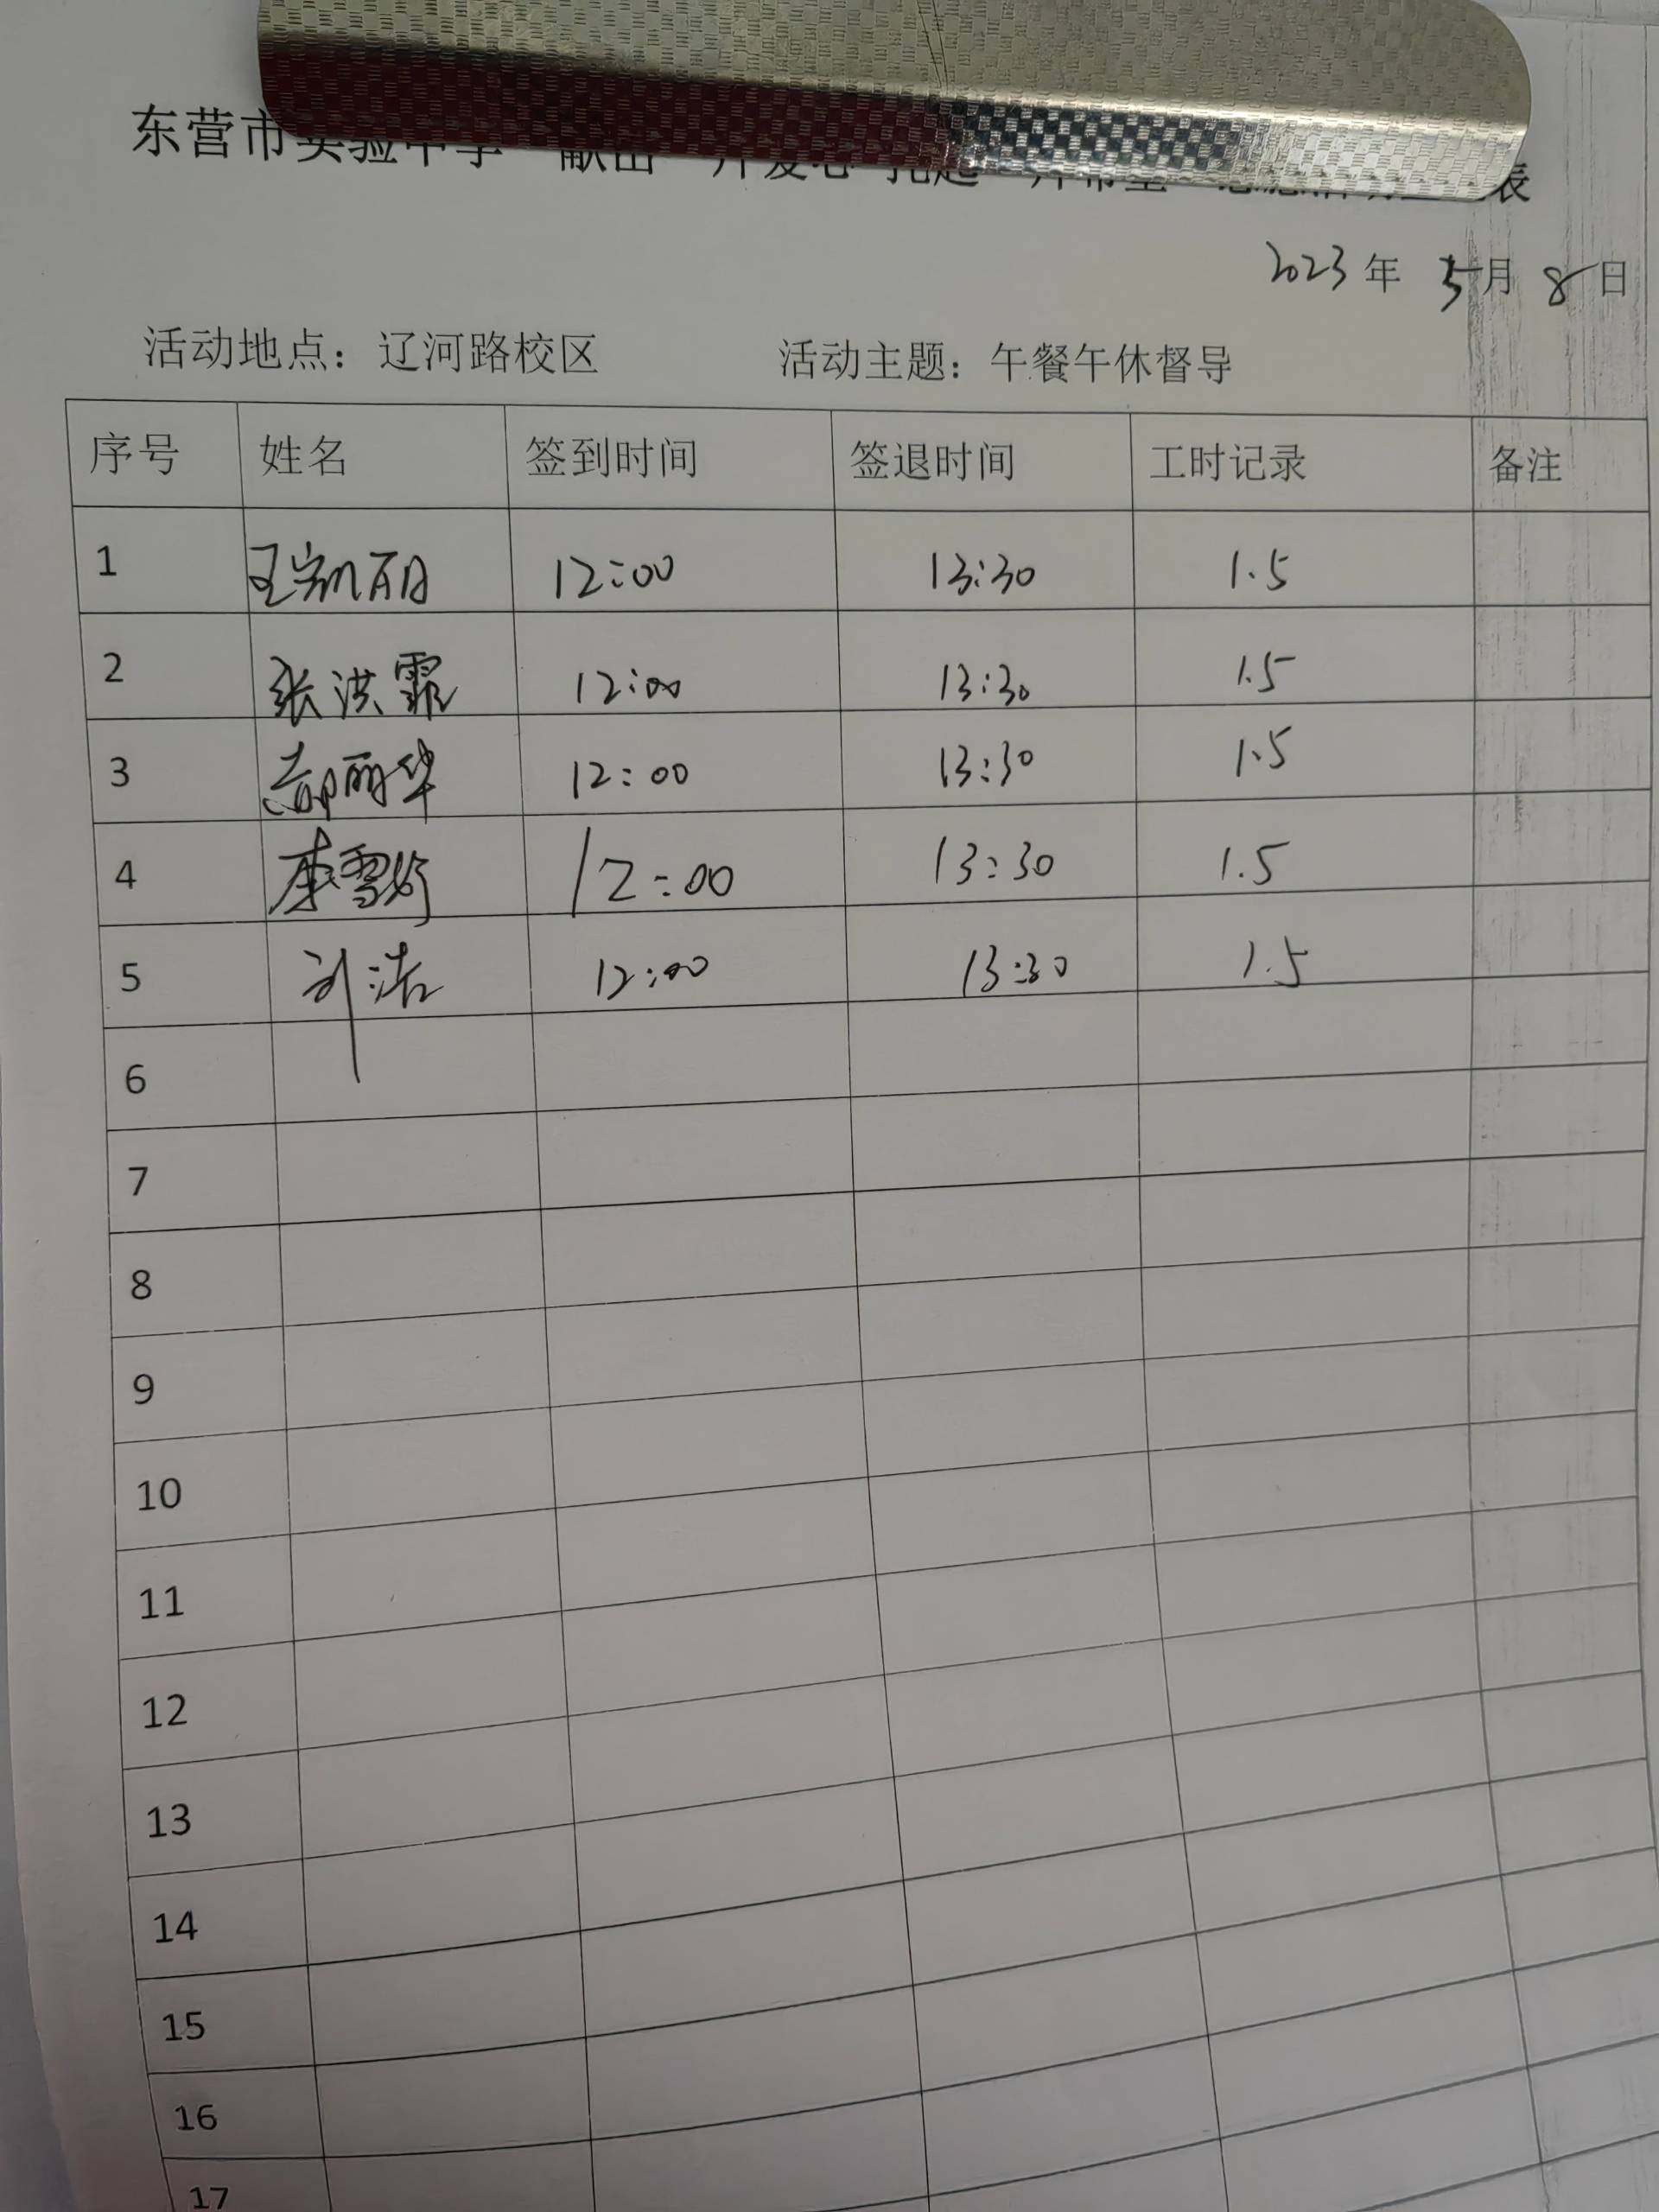 东营市实验中学 献出一片爱心 托起一片希望 表
2023年 5月 8日
活动地点：辽河路校区 活动主题：午餐午休督导
序号 姓名 签到时间 签退时间 工时记录 备注
1 12:00 13:30 1.5
2 张洪霏 12:00 13:30 1.5
3 郝丽华 12:00 13:30 1.5
4 12:00 13:30 1.5
5 刘洁 12:00 13:30 1.5
6
7
8
9
10
11
12
13
14
15
16
17